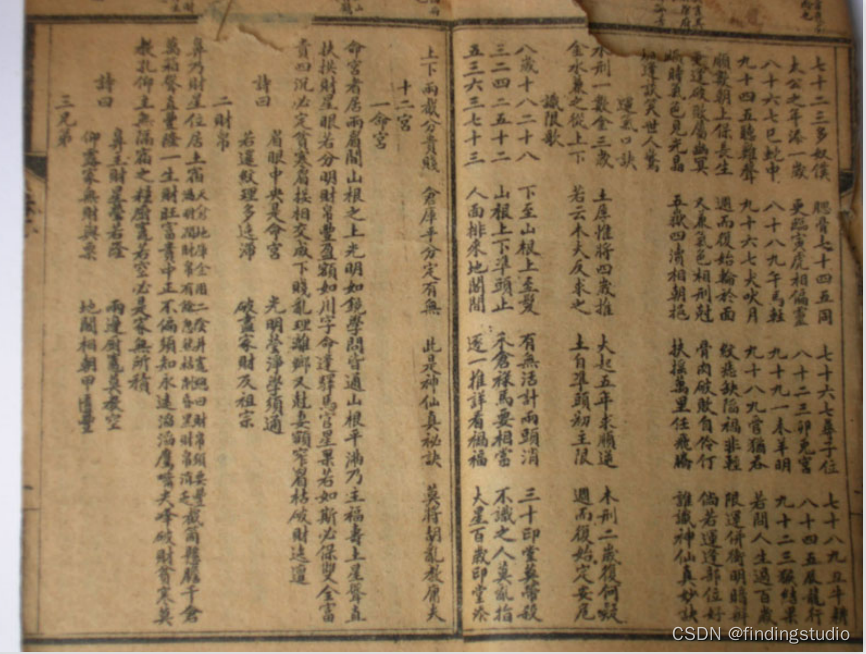 七十二三多奴僕 腮骨七十四五同 七十六七尋子位 七十八九丑牛耕
太公之年添一歲 更臨寅虎相偏靈 八十二三卯兔宮 八十四五辰龍行
八十六七巳蛇中 八十八九午馬輕 九十九一未羊明 九十二三猴結果
九十四五聽雞聲 九十六七犬吠月 九十八九亥猪吞 若問人生過百歲
頤數朝上保長生 週而復始輪於面 紋痣缺陷禍非輕 限運併衝明暗辨
更逢破敗屬幽冥 又兼氣色相刑尅 骨肉破敗自伶仃 倘若運逢部位好
順時氣色見光晶 五嶽四瀆相朝挹 扶搖萬里任飛騰 誰識神仙真妙訣
逢談笑世人驚
運氣口訣
水刑一數金三歲 土厚惟將四歲推 火起五年求順逆 木刑二歲復何疑
金水兼之從上下 若云水火反求之 土自準頭初主限 週而復始定安危
識限歌
八歲十八二十八 下至山根上至髮 有無活計兩頭消 三十印堂莫帶殺
三二四二五十二 山根上下準頭止 禾倉祿馬要相當 不識之人莫亂指
五三六三七十三 人面排來地閣間 逐一推詳看禍福 火星百歲印堂添
上下兩截分貴賤 倉庫平分定有無 此是神仙真秘訣 莫將胡亂教庸夫
十二宮
一命宮
命宮者居兩眉間山根之上光明如鏡學問皆通山根平滿乃主福壽土星聳直
扶拱財星眼若分明財帛豐盈額如川字命逢驛馬官星果若如斯必保雙全富
貴凹沉必定貧寒眉接相交成下賤亂理離鄉又尅妻額窄眉枯破財迍邅
詩曰
眉眼中央是命宮 光明瑩淨學須通
若還紋理多迍滯 破盡家財及祖宗
二財帛
鼻乃財星位居土宿 截筒懸膽千倉
萬箱聳直豐隆一生財旺富貴中正不偏須知永遠滔滔鷹嘴尖峰破財貧寒莫
教孔仰主無隔宿之糧廚竈若空必是家無所積
詩曰
鼻主財星瑩若隆 兩邊廚竈莫教空
仰露家無財與粟 地閣相朝甲匱豐
三兄弟
CSDN @findingstudio